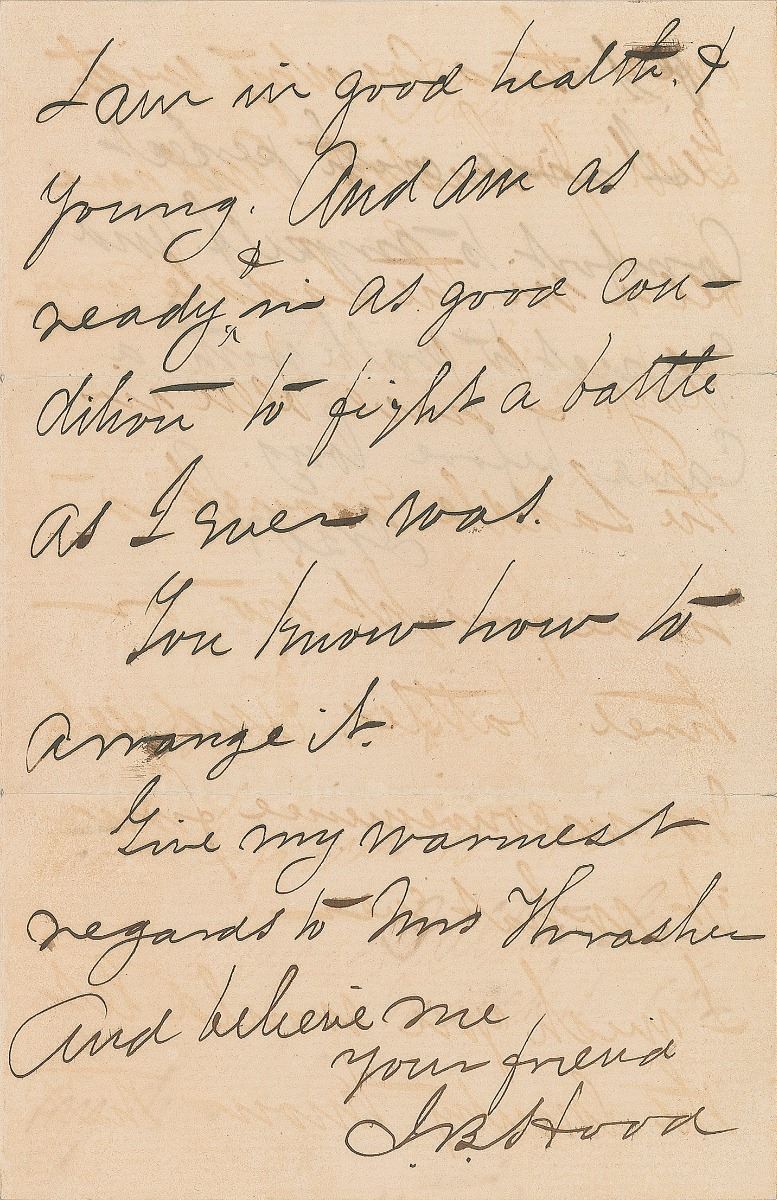 I am in good health, &
young. And am as
ready & in as good con-
dition to fight a battle
as I ever was.
You know how to
arrange it.
Give my warmest
regards to Mrs Thrasher
And believe me
your friend
J.B. Hood